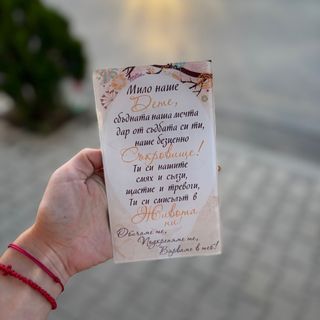 Мило наше
Дете,
сбъдната наша мечта
дар от съдбата си ти,
наше безценно
Съкровище!
Ти си нашите
смях и сълзи,
щастие и тревоги,
Ти си смисълът в
Живота
ни!
Обичаме те,
Подкрепяме те,
Вярваме в теб!